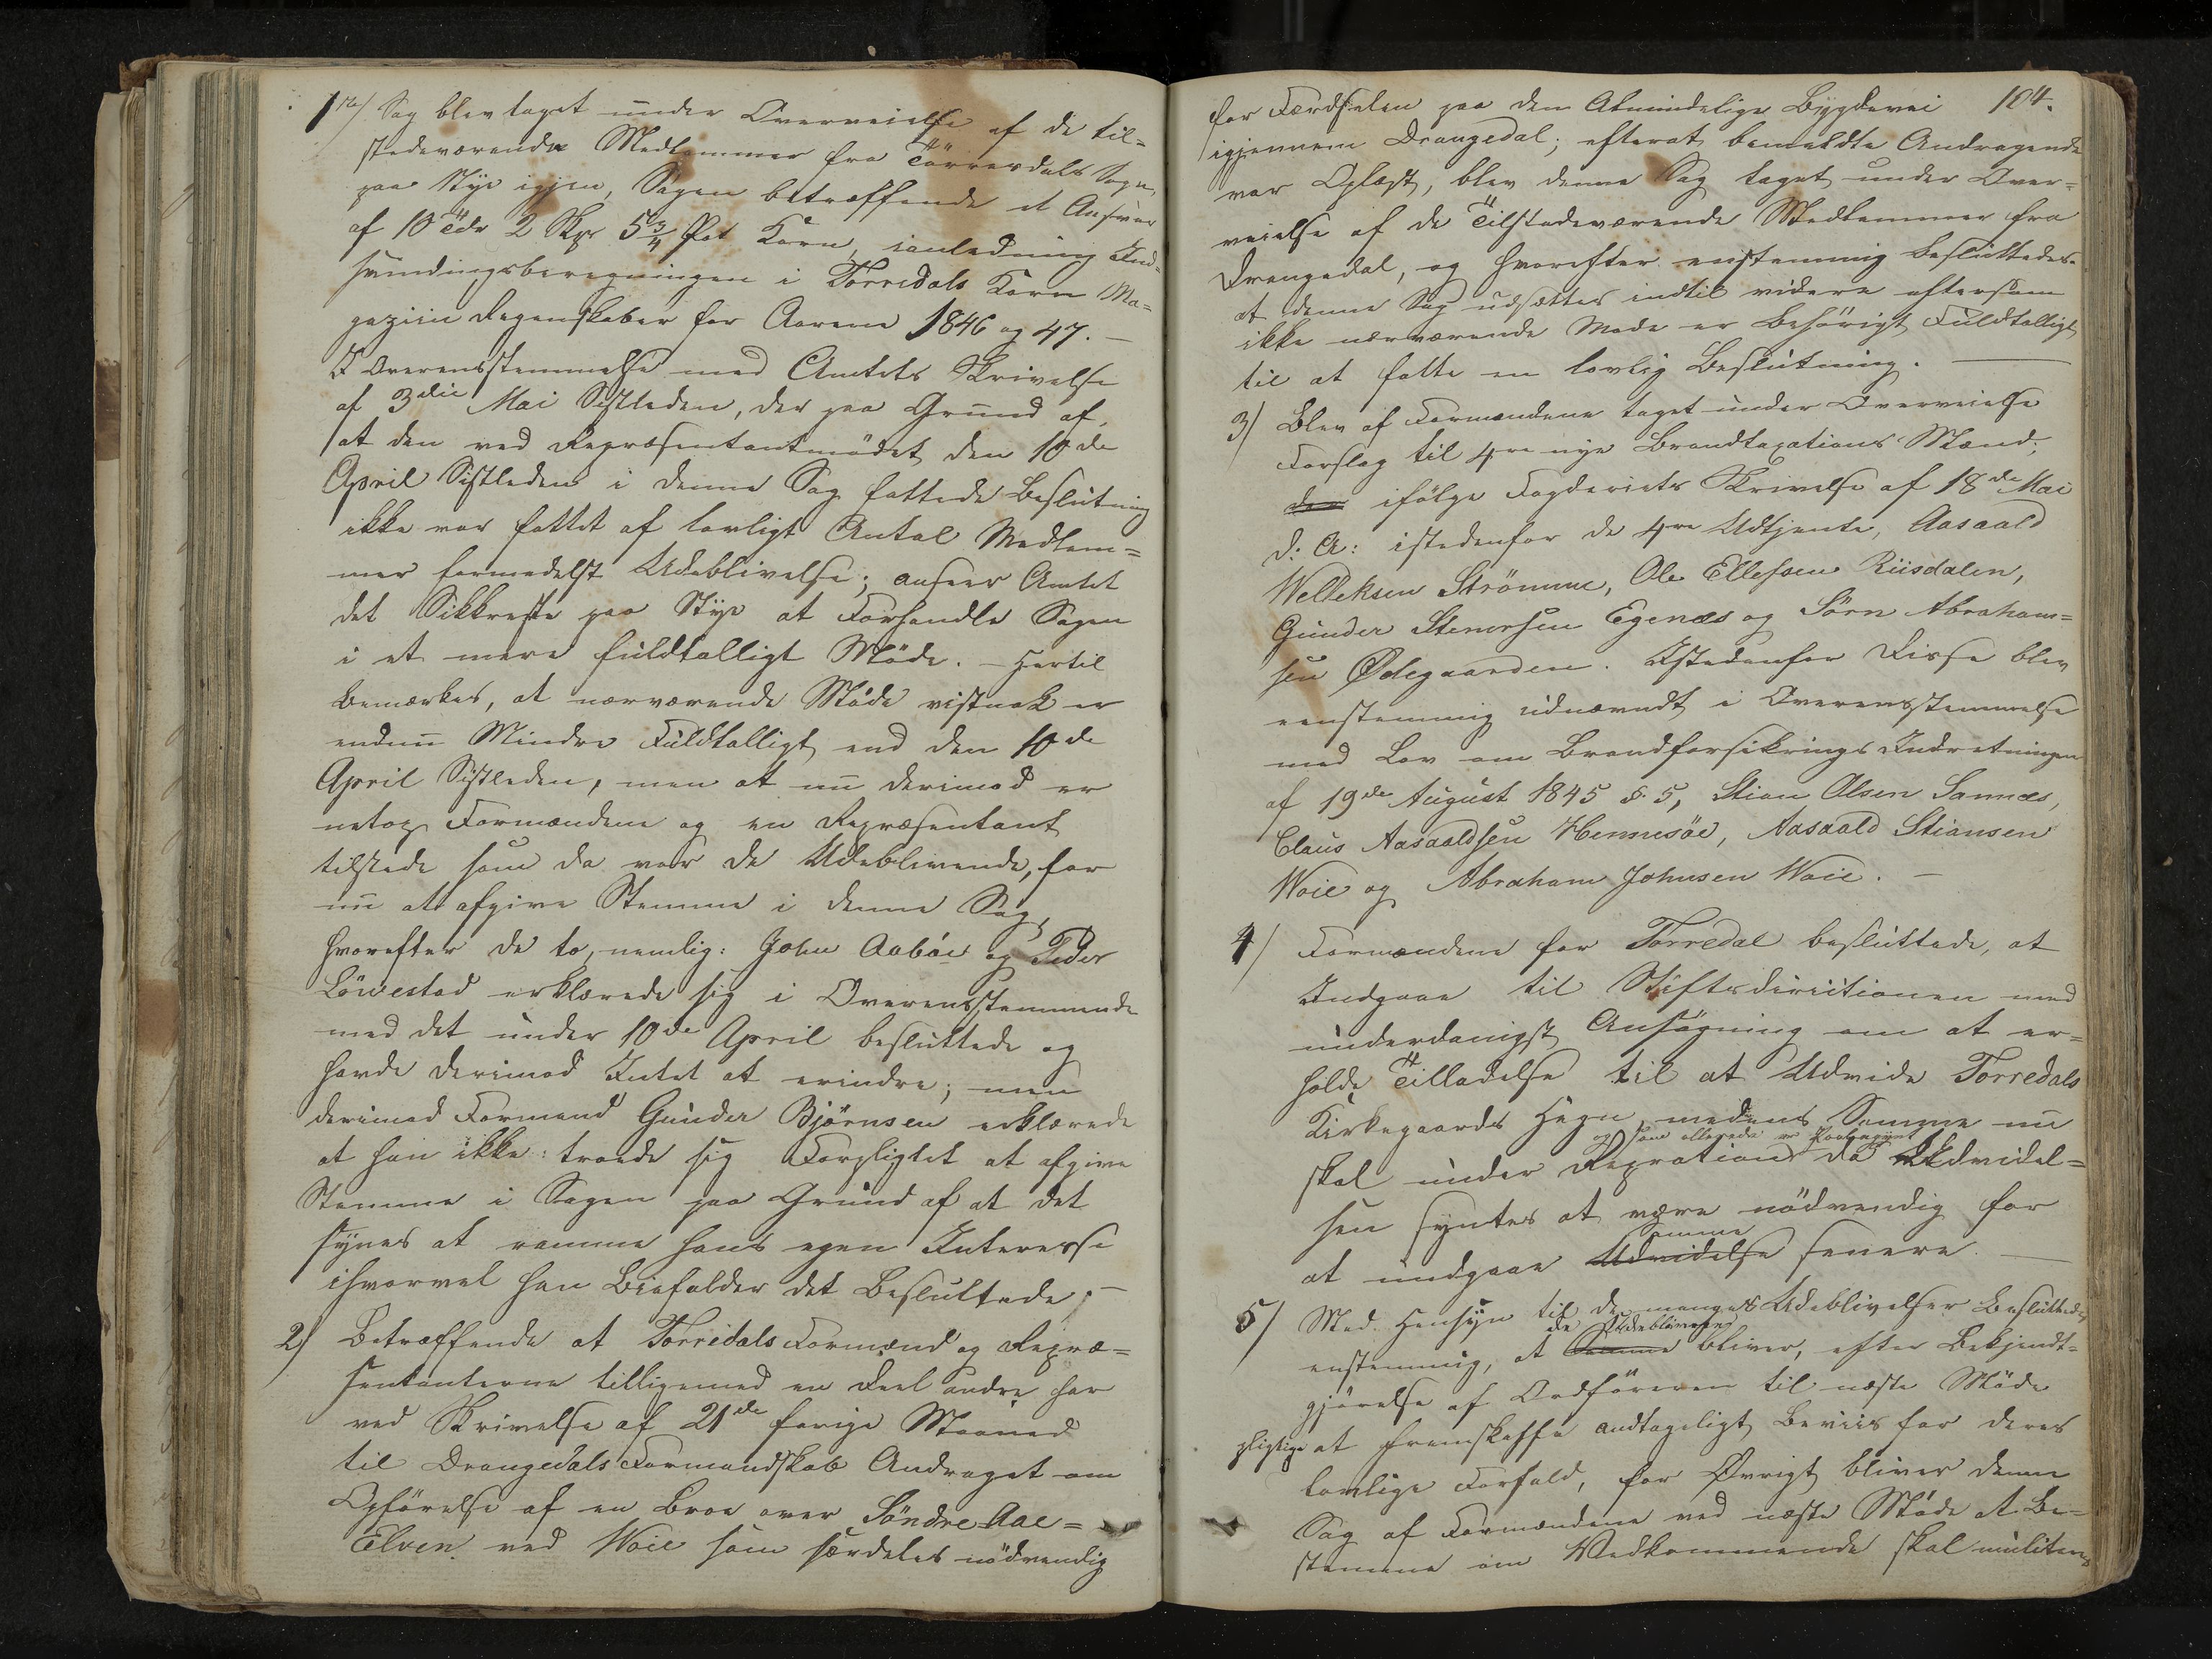 1ste/ Sag blev taget under Overveielse af de til=
stedeværende Medlemmer fra Törresdals Sogn,
paa Nye igjen, Sagen betræffende et Ansvar
af 10 Tdr 2 Skp 5 3/4 Pot Korn, ianledning Ind=
svindingsberegningen i Torredals Korn Ma=
gaziin Regenskaber for Aarene 1846 og 47. —
I Overensstemmelse med Amtets Skrivelse
af 3die Mai Sistleden, der paa Grund af,
at den ved Repræsentantmödet den 10de
April Sistleden i denne Sag fattede Beslutning
ikke var fattet af lovligt Antal Medlem=
mer formedelst Udeblivelse; anseer Amtet
det Sikkreste paa Nye at Forhandle Sagen
i et mere fuldtalligt Möde. — Hertil
bemærkes, at nærværende Möde vistnok er
endnu Mindre Fuldtalligt end den 10de
April Sistleden, men at nu derimod er
netop Formændene og en Repræsentant
tilstede som da var de Udeblivende, for
nu at afgive Stemme i denne Sag,
hvorefter de to, nemlig: John Aaböe og Peder
Lövestad erklærede sig i Overensstemmende
med det under 10de April besluttede og
havde derimod Intet at erindre; men
derimod Formand Gunder Björnsen erklærede
at han ikke troede sig Forpligtet at afgive
Stemme i Sagen paa Grund af at det
synes at ramme hans egen Interesse
ihvorvel han Biefalder det Besluttede. —
2/ Betræffende at Torridals Formænd og Repræ=
sentanterne tilligemed en Deel andre har
ved Skrivelse af 21de forrige Maaned
til Drangedals Formandskab Andraget om
Opförelse af en Broe over Söndre Aae=
Elven ved Woie som særdeles nödvendig
104.
for Færdselen paa den Almindelige Bygdevei
igjennem Drangedal; efterat bemeldte Andragende
var Oplæst, blev denne Sag taget under Over=
veielse af de Tilstedeværende Medlemmer fra
Drangedal, og hvorefter enstemmig besluttedes
at denne Sag udsættes indtil videre eftersom
ikke nærværende Möde er behörigt Fuldtalligt
til at fatte en lovlig Beslutning. —
3/ Blev af Formændene taget under Overveielse
Forslag til 4re nye Brandtaxations Mænd,
den ifölge Fogderiets Skrivelse af 18de Mai
d: A: istedenfor de 4re Udtjente, Aasaald
Welleksen Strömme, Ole Ellefsen Riisdalen,
Gunder Stenersen Egenæs og Sörn Abraham=
sen Ødegaarden. Istedenfor Disse blev
eenstemmig udnævndt i Overensstemmelse
med Lov om Brandforsikrings Indretningen
af 19de August 1845 §. 5, Stian Olsen Sannæs,
Claus Aasaaldsen Hennesöe, Aasaald Stiansen
Woie og Abraham Johnsen Woie. —
4/ Formændene for Torredal besluttede, at
Indgaae til Stiftsdirectionen med
underdanigst Ansögning om at er=
holde Tilladelse til at Udvide Torredals
Kirkegaards Hegn medens Samme nu
og som allerede er Paabegynt
skal under Repration da Udvidel=
sen syntes at være nödvendig for
Samme
at undgaae Udvidelse senere. —
5/ Med Hensyn til de manges Udeblivelser besluttedes
de Udeblivende
enstemmig, at Samme bliver, efter Bekjendt=
gjörelse af Ordföreren til næste Möde
pligtige at fremskaffe andtageligt Beviis for deres
lovlige Forfald, for Øvrigt bliver denne
Sag af Formændene ved næste Möde at Be=
stemme om Vedkommende skal mulkteres